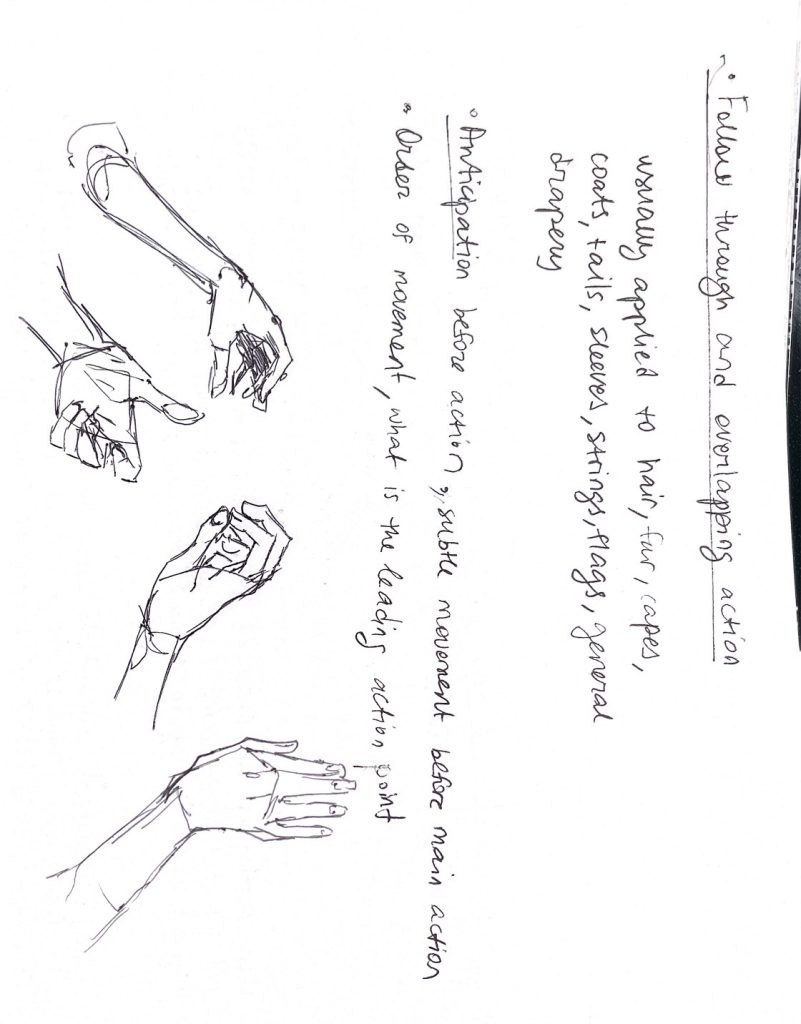 • Follow through and overlapping action
usually applied to hair, fur, capes,
coats, tails, sleeves, strings, flags, general
drapery
• Anticipation before action, subtle movement before main action
• Order of movement, what is the leading action point